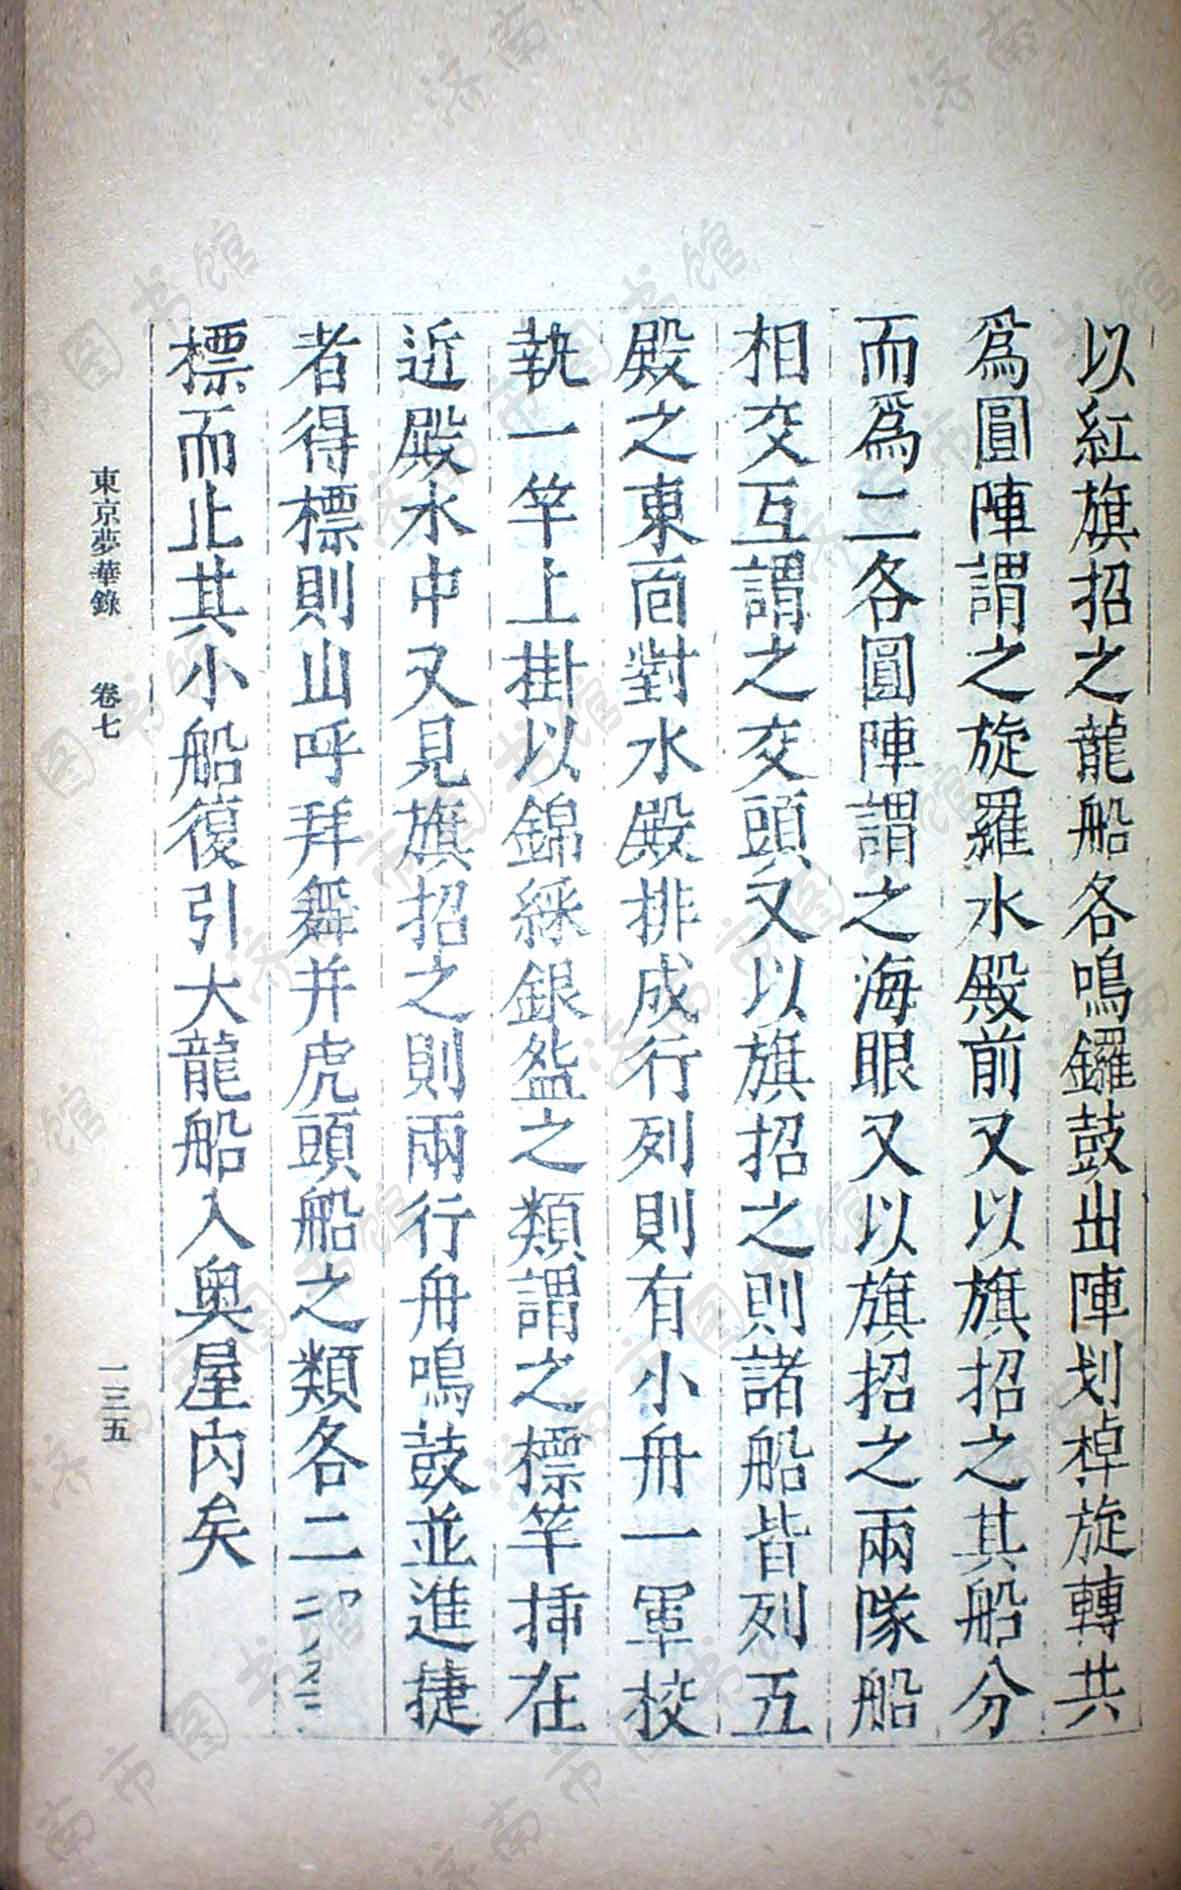 以紅旗招之龍船各鳴鑼鼓出陣划棹旋轉共
爲圓陣謂之旋羅水殿前又以旗招之其船分
而爲二各圓陣謂之海眼又以旗招之兩隊船
相交互謂之交頭又以旗招之則諸船皆列五
殿之東面對水殿排成行列則有小舟一軍校
執一竿上掛以錦綵銀盌之類謂之標竿插在
近殿水中又見旗招之則兩行舟鳴鼓並進捷
者得標則山呼拜舞并虎頭船之類各二
標而止其小船復引大龍船入奧屋內矣
東京夢華錄 卷七
一三五
济南市图书馆